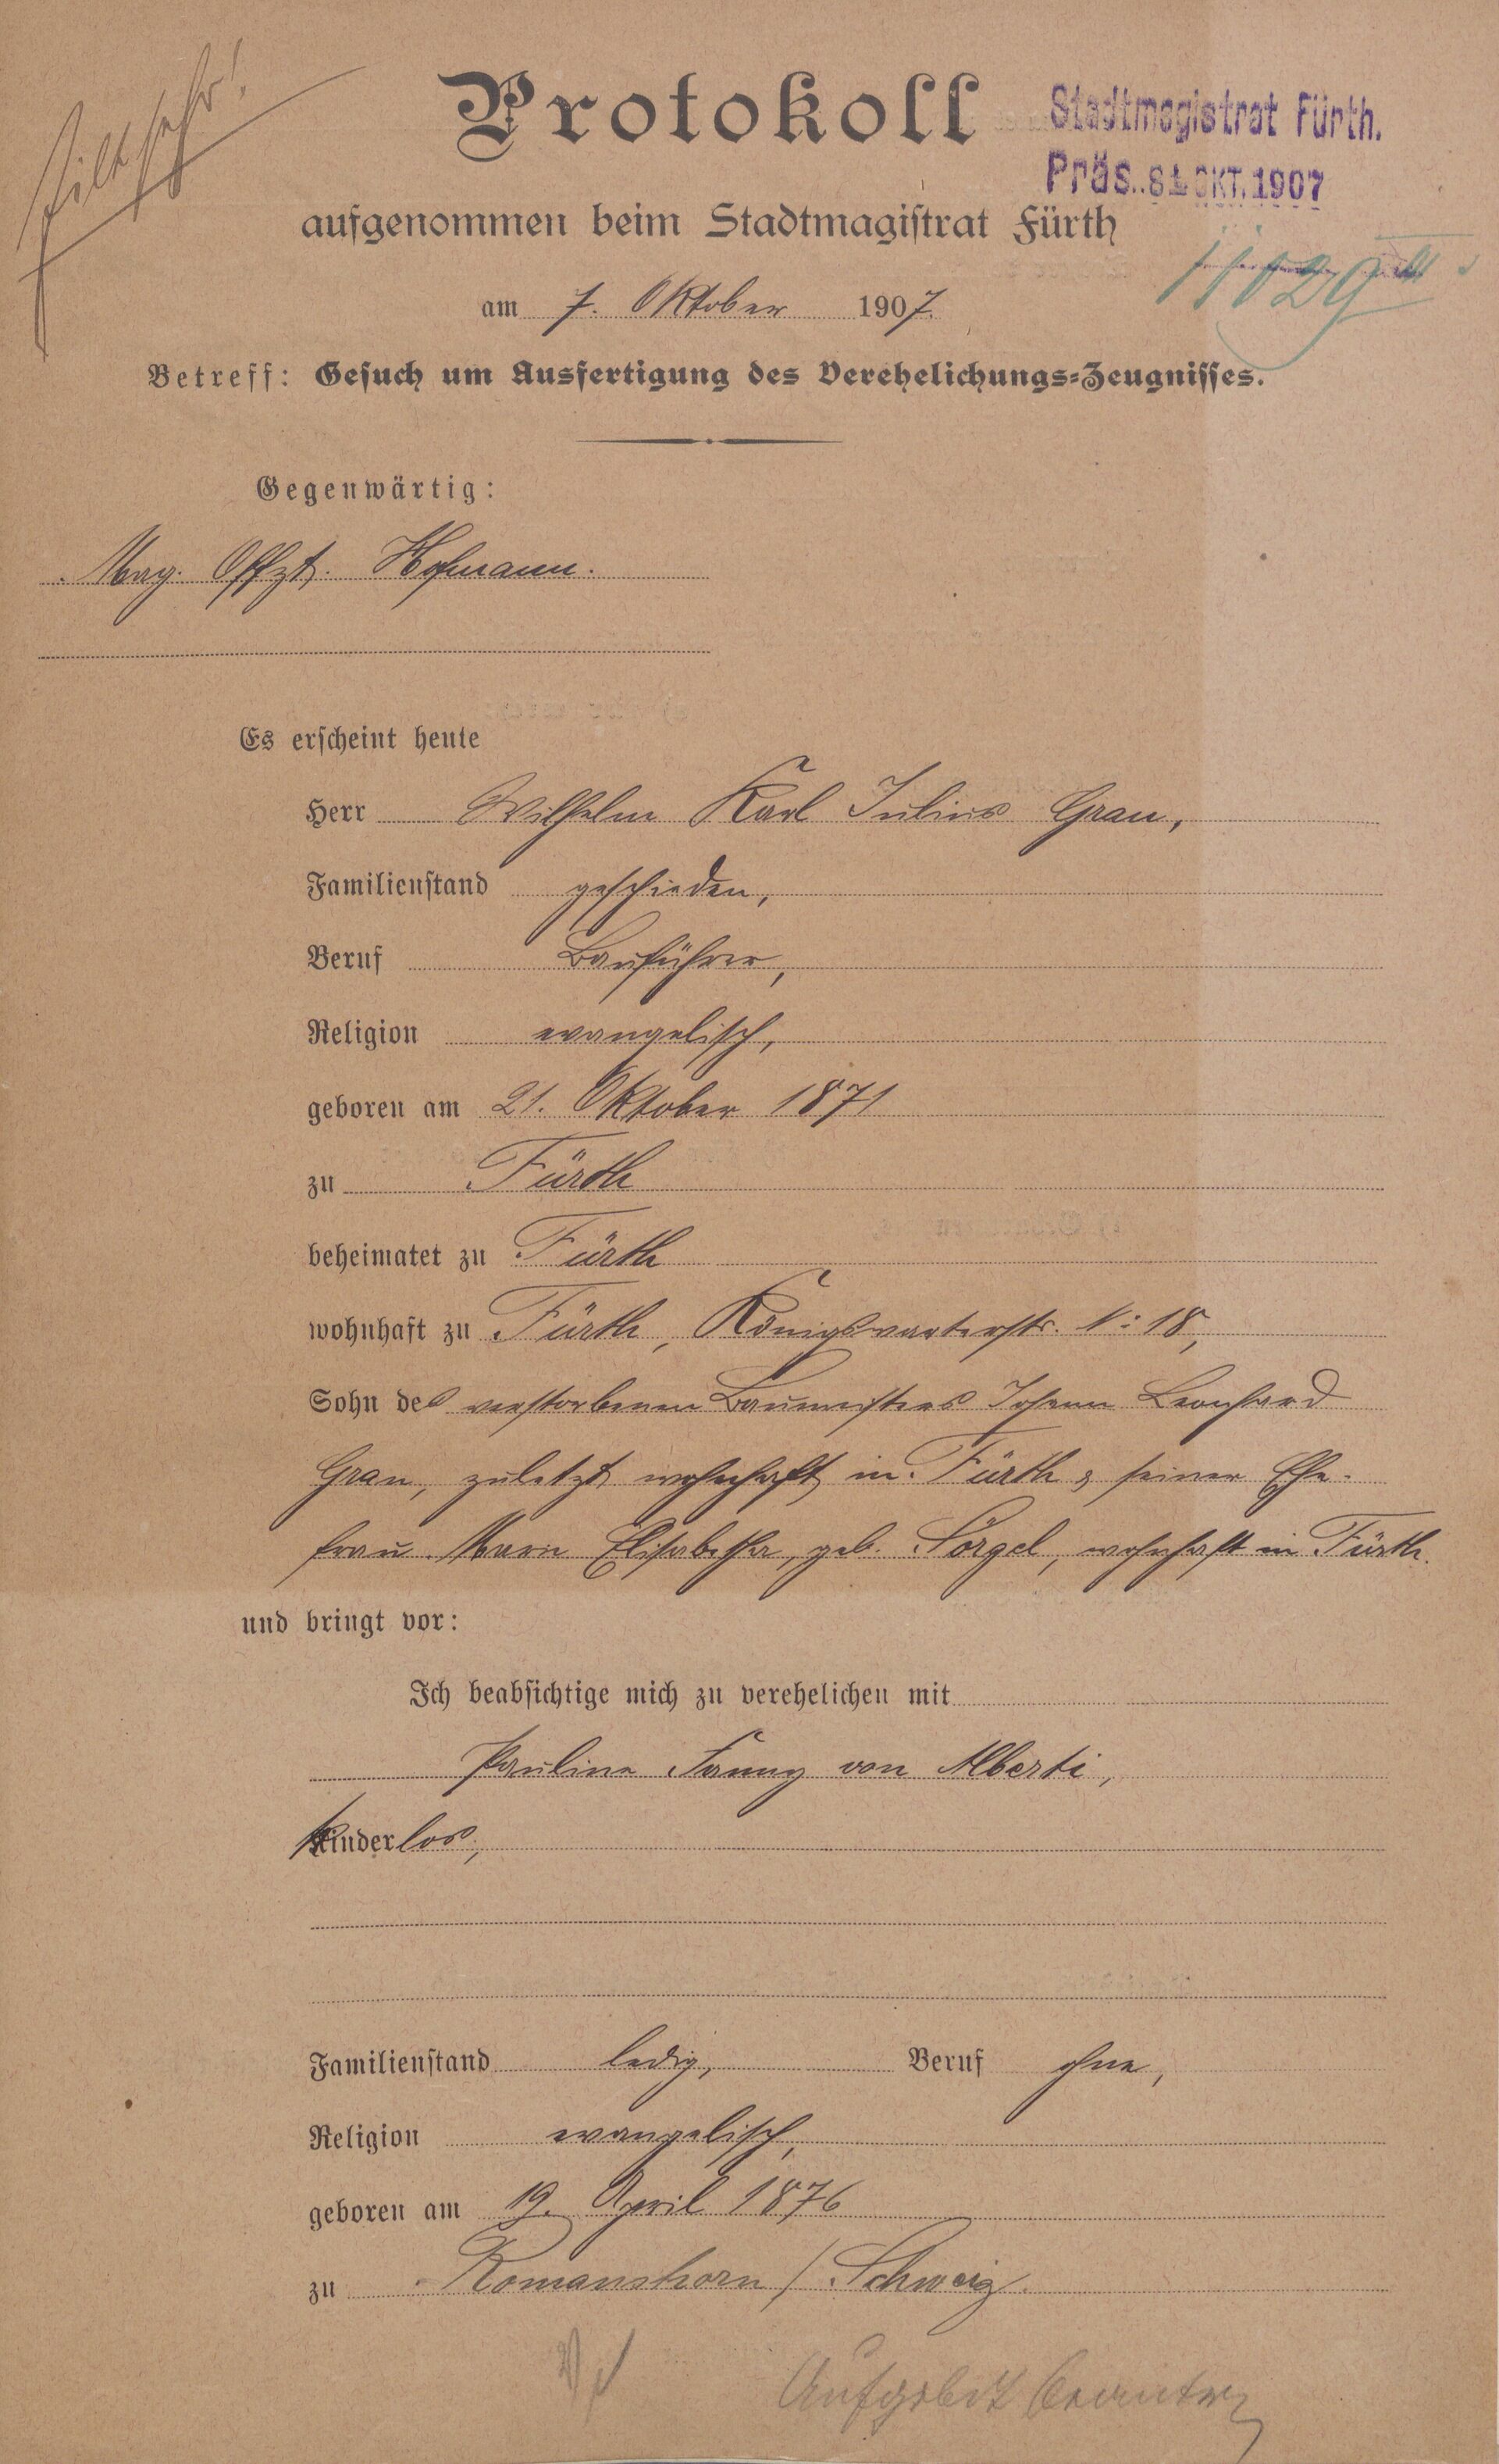 Eilt sehr!
Protokoll
Stadtmagistrat Fürth.
Präs. 8. OKT. 1907
aufgenommen beim Stadtmagiſtrat Fürth
11029
am 7. Oktober 1907.
Betreff: Geſuch um Ausfertigung des Verehelichungs-Zeugniſſes.
Gegenwärtig:
Mag. Offzt. Hofmann.
Es erſcheint heute
Herr Wilhelm Karl Julius Grau,
Familienſtand geschieden,
Beruf Bauführer,
Religion evangelisch,
geboren am 21. Oktober 1871
zu Fürth
beheimatet zu Fürth
wohnhaft zu Fürth, Königswarterstr. N: 18,
Sohn des verstorbenen Baumeisters Johann Leonhard
Grau, zuletzt wohnhaft in Fürth & seiner Ehe-
frau Marie Elisabetha, geb. Sörgel, wohnhaft in Fürth.
und bringt vor:
Ich beabſichtige mich zu verehelichen mit
Pauline Fanny von Alberti,
kinderlos,
Familienſtand ledig, Beruf ohne,
Religion evangelisch,
geboren am 19. April 1876
zu Romanshorn / Schweiz.
Aufgebot